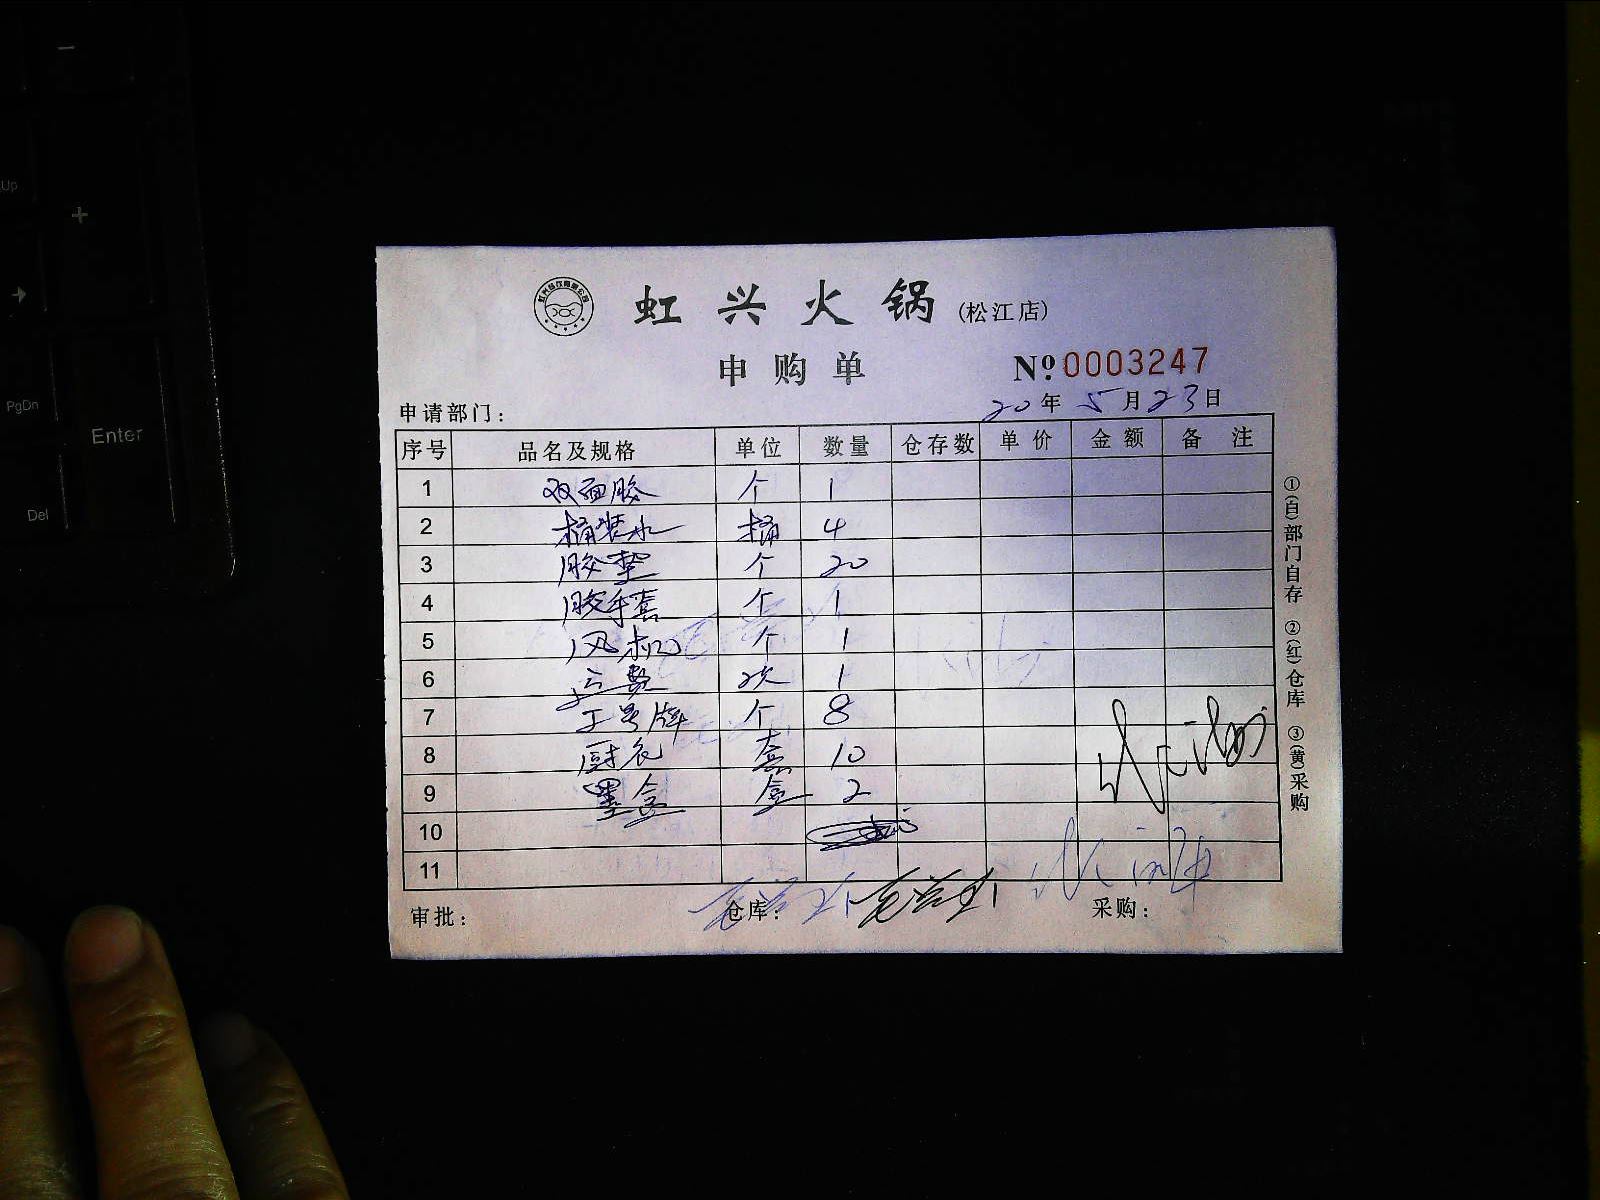 虹兴火锅(松江店)
申购单
№ 0003247
20年5月23日
申请部门:
序号 品名及规格 单位 数量 仓存数 单价 金额 备注
1 双面胶 个 1
2 桶装水 桶 4
3 胶垫 个 20
4 胶手套 个 1
5 风机 个 1
6 运费 次 1
7 工号牌 个 8
8 厨衣 套 10
9 墨盒 盒 2
10
11
审批: 仓库: 采购:
①(白)部门自存 ②(红)仓库 ③(黄)采购
Up
+
PgDn
Enter
Del